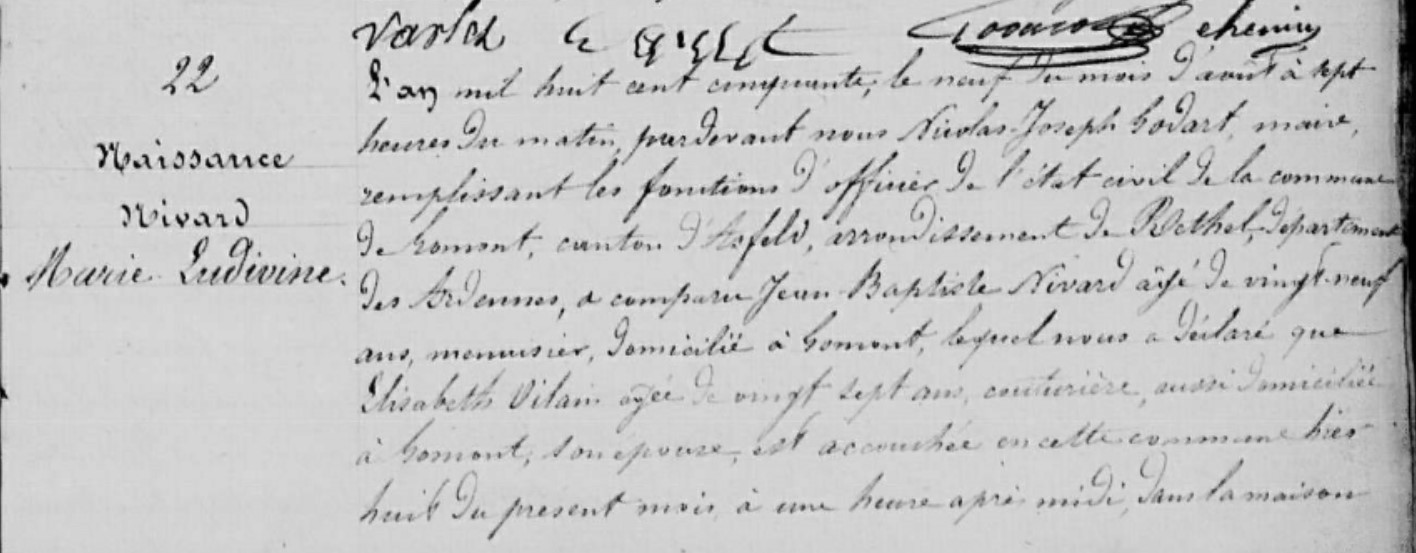 Varlet chemin
22
Naissance
Nivard
Marie Ludivine.
L'an mil huit cent cinquante, le neuf du mois d'aout à sept
heures du matin, pardevant nous Nicolas Joseph Godart, maire,
remplissant les fonctions d'officier de l'état civil de la commune
de Gomont, canton d'Asfeld, arrondissement de Rethel, département
des Ardennes, a comparu Jean Baptiste Nivard âgé de vingt-neuf
ans, menuisier, domicilié à Gomont, lequel nous a déclaré que
Elisabeth Vilain agée de vingt sept ans, couturière, aussi domiciliée
à Gomont, son epouse, est accouchée en cette commune hier
huit du présent mois, à une heure après midi, dans la maison